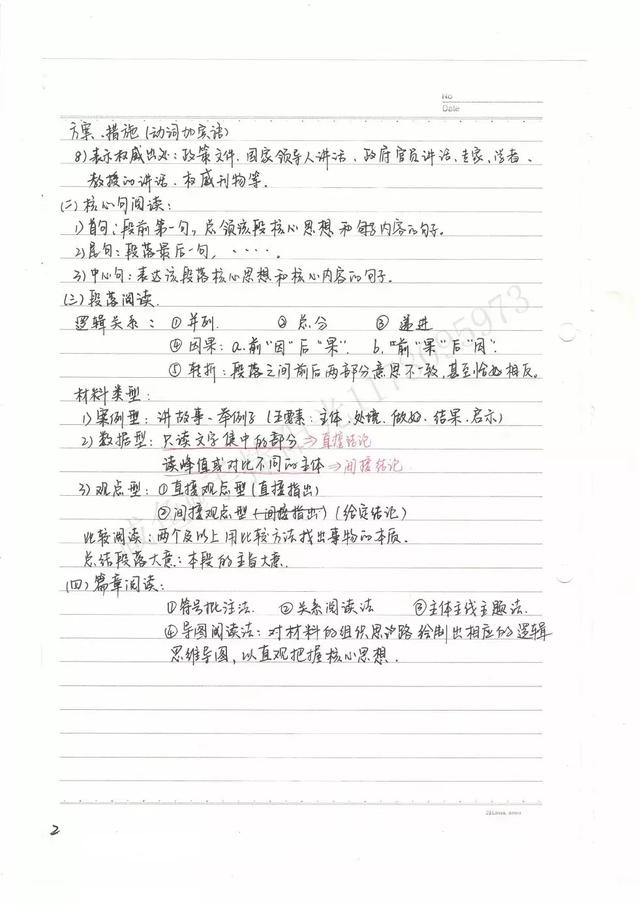 No
Date
方案、措施(动词加宾语)
8)表示权威出处:政策文件、国家领导人讲话、政府官员讲话、专家、学者、
教授的讲话、权威刊物等。
(二)核心句阅读:
1)首句:段前第一句,总领该段核心思想和内容的句子。
2)尾句:段落最后一句,····。
3)中心句:表达该段落核心思想和核心内容的句子。
(三)段落阅读.
逻辑关系: ①并列 ②总分 ③递进
④因果:a.前"因"后"果". b."前"果"后"因".
⑤转折:段落之间前后两部分意思不一致,甚至恰好相反。
材料类型:
1)案例型:讲故事、举例子(五要素:主体、处境、做法、结果、启示)
2)数据型:只读文字集中的部分⇒直接结论
读峰值或对比不同的主体⇒间接结论
3)观点型:①直接观点型(直接指出)
②间接观点型(间接指出)(给定结论)
比较阅读:两个及以上用比较方法找出事物的本质。
总结段落大意:本段的主旨大意.
(四)篇章阅读:
①符号批注法. ②关系阅读法 ③主体主线主题法.
④导图阅读法:对材料的组织思路绘制出相应的逻辑
思维导图,以直观把握核心思想.
2